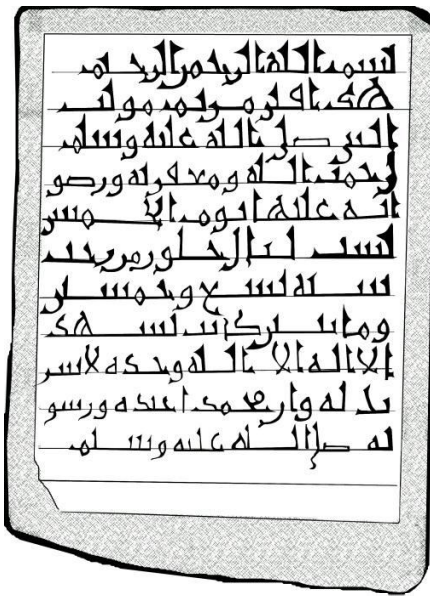 بسم الله الرحمن الرحيم
هذا قبر مريم مولت
النبي صلى الله عليه وسلم
رحمت الله ومغفرته ورضو
انه عليها يوم الخميس
لست ليال خلون من رجب
سنة تسع وخمسين
وماتين كانت تشهد
الا اله الا الله وحده لا شر
يك له وان محمدا عبده ورسو
له صلى الله عليه وسلم